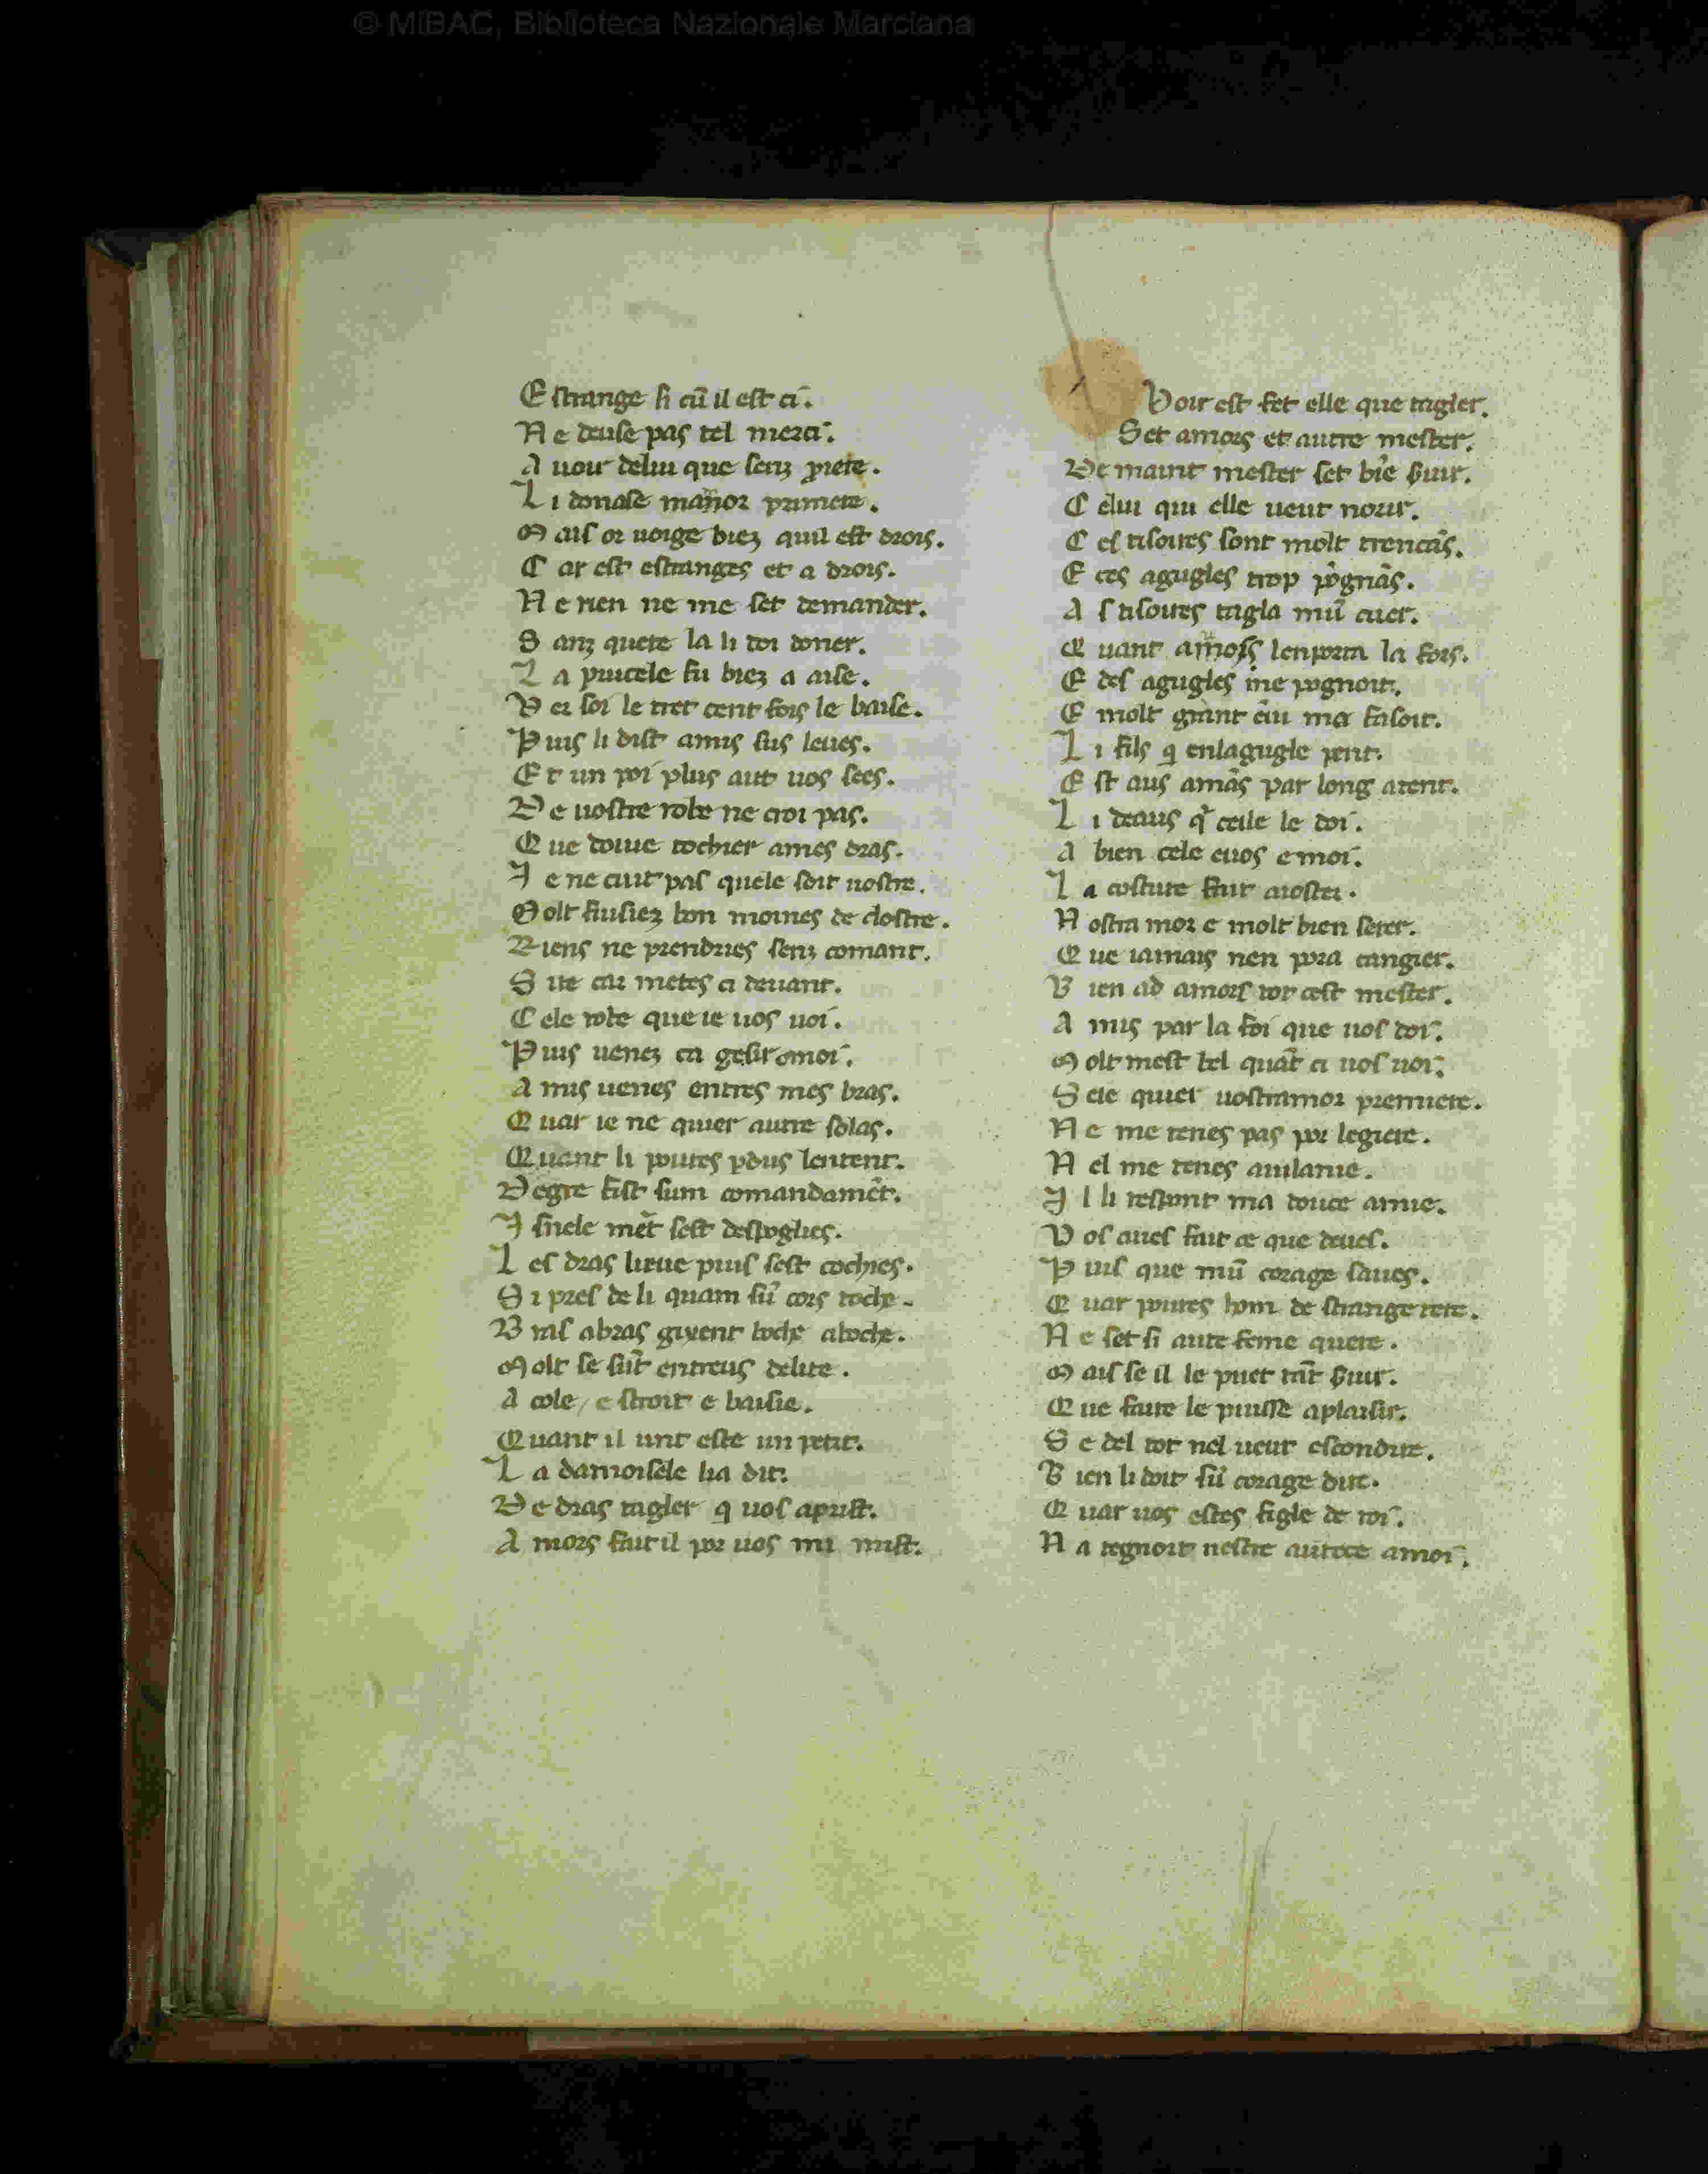 © MiBAC, Biblioteca Nazionale Marciana
E strange si cū il est ci.
N e deuse pas tel merci.
A uoir delui que senz ꝓiere.
L i donase mamor primere.
M ais or uoige biez quil est drois.
C ar est estranges et a drois.
N e rien ne me set demander.
S anz quere la li doi doner.
L a pucele fu biez a aise.
V er soi le tret cent fois le baise.
P uis li dist amis sus leues.
E t un poi plus aut uos sees.
D e uostre robe ne croi pas.
Q ue doiue tochier ames dras.
J e ne cuit pas quele soit uostre.
M olt fusiez bon moines de clostre.
R iens ne prendries senz comant.
S ire car metes ci deuant.
C ele robe que ie uos uoi.
P uis uenez ca gesir omoi.
A mis uenes entres mes bras.
Q uar ie ne quier autre solas.
Q uant li poures ꝑdus lentent.
D egre fist sum comandamēt.
J snele mēt sest despoglies.
L es dras lieue puis sest cochies.
S i pres de li quam sū cors toche.
B ras abras gixent boche aboche.
M olt se sūt entreus delite.
A cole, e stroit e baisie.
Q uant il unt este un petit.
L a damoisele lia dit.
D e dras tagler q uos aprist.
A mors fait il por uos mi mist.
Voir est fet elle que tagler.
Set amors et autre mester.
De maint mester set biē ẜuir.
C elui qui elle ueut norir.
C es tisoires sont molt trencās.
E ces agugles trop pognās.
A s tisoires tagla mū cuer.
Q uant amors lenporta la fors.
E des agugles me pognoit.
E molt grant ēui ma fasoit.
L i fils q enlagugle pent.
E st aus amās par long atent.
L i deaus q̄ ceile le doi.
A bien cele euos emoi.
L a costure fait aioster.
N ostra mor e molt bien serer.
Q ue iamais nen pora cangier.
B ien ad amors tot cest mester.
A mis par la foi que uos doi.
M olt mest bel quāt ci uos uoi.
S eie quier uostramor premiere.
N e me tenes pas por legiere.
N el me tenes auilanie.
J l li respont ma douce amie.
V os aues fait ce que deues.
P uis que mū corage saues.
Q uar poures hom de strange tere.
N e set si aute feme quere.
M ais se il le puet tāt ẜuir.
Q ue faire le puisse aplaisir.
S e del tot nel ueut escondire.
B ien li doit sū corage dire.
Q uar uos estes figle de roi.
N a tegnoit nestre autece amoi.